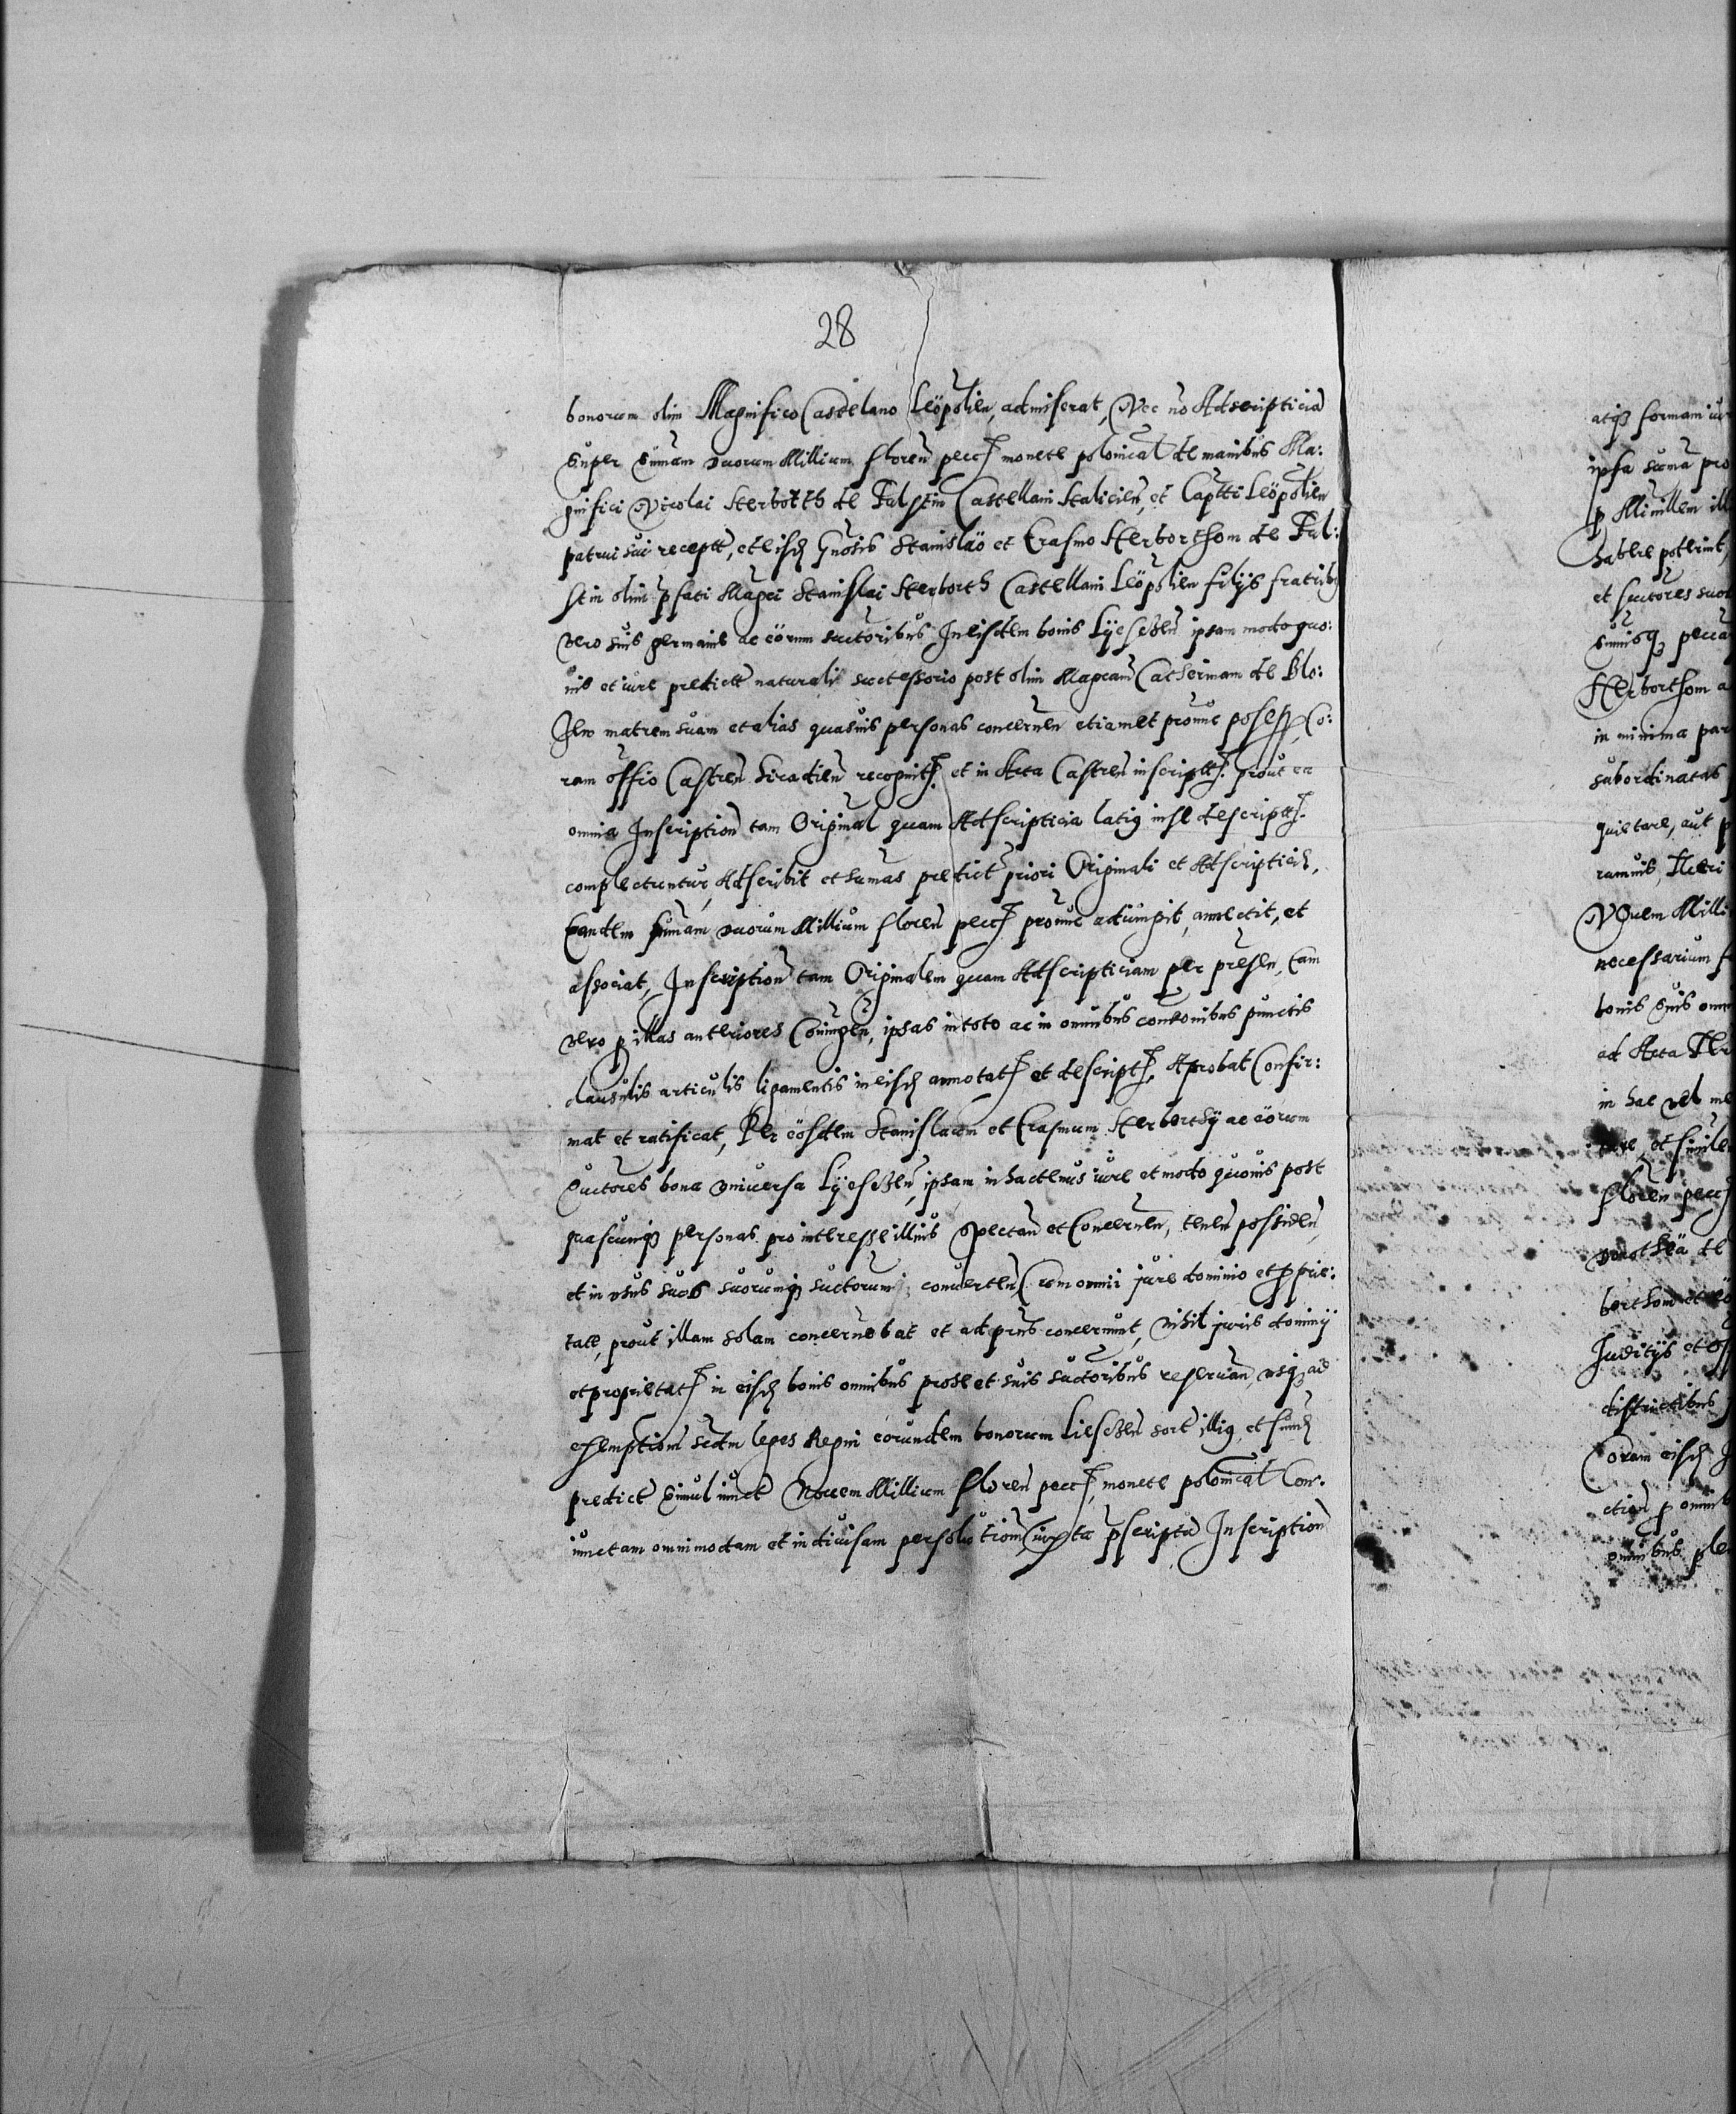 28
bonorum olim Magnifico Castelano Leöpolien, admiserat, Nec no Adscripticia
Super Sumam duorum Millium floren pecc monete polonical de manibus Ma:
gnifici Nicolai Herborth de Fulstin Castellani Halicien, et Captti Leöpolien
patrui sui receptt, eteisd Gnosis Stanislaö et Erasmo Herborthom de Ful:
stin olim pfati Magci Stanislai Herborth Castellani Leöpolien filijs fratribq
vero suis germanis ac eörum suctoribus In eisdem bonis Lÿesczen ipsam modo quo:
uis et iure predictt naturali successorio post olim Magcam Catherinam de Blo:
matrem suam et alias quasuis personas concernen etiam et pronuc Co:
ram offio Castren Siradien recognit et in Acta Castren inscriptt prout ea
omnia Inscription tam Original quam Adscripticia latiq in se descriptt
complectuntur, Adscribit et Sumas predict priori Originali et Adscripticie,
Eandem Sumam duorum Millium floren pecc pronuc adiungit, annectit, et
associat, Inscription tam Originalem quam Adscripticiam per presen, tam
vero p illas anteriores Coniungen, ipsas in toto ac in omnibus conditonibus punctis
clausulis articulis ligamentis in eisd annotat et descript, Aprobat Confir:
mat et ratificat, Per eösdem Stanislaum et Erasmum Herborthÿ ac eörum
Suctores bona vniuersa Lÿesczen, ipsam in hactenus iure et modo quouis post
quascunq personas pro interesse illius Spectan et Concernen, tenen possiden,
et in vsus suos suorumq suctorum conuerten, Cum omni jure dominio et pprie:
tate, prout illam solam concernebat et ad pns concernunt, Nihil juris dominÿ
et proprietat in eisd bonis omnibus pro se et suis suctoribus reseruan, vsq ad
exemptiom scdm leges Regni eorundem bonorum Liesczen sort illiq, et sume
predict Simul iunct Nouem Millium floren pecc, monete polonical Con:
iunctam omnimodam et indiuisam persolutiom, iuxta pscripta Inscription
atqs formam iu
ipsa suma pro
p Mimillem ill
habere poterint,
et suctores suo
Sumisq pecca
Herborthom a
in minima par
subordinatas
quietare, aut p
ramuis, Fleri
NOuem Milli
necessarium f
bonis Suis omn
ad Acta Ter
in hac vel me
et simile
floren pecc
Dorothëa de
borthom et eö
Juditÿs et of
districtibus
Coram eisd J
ction p omni
omnibus ple